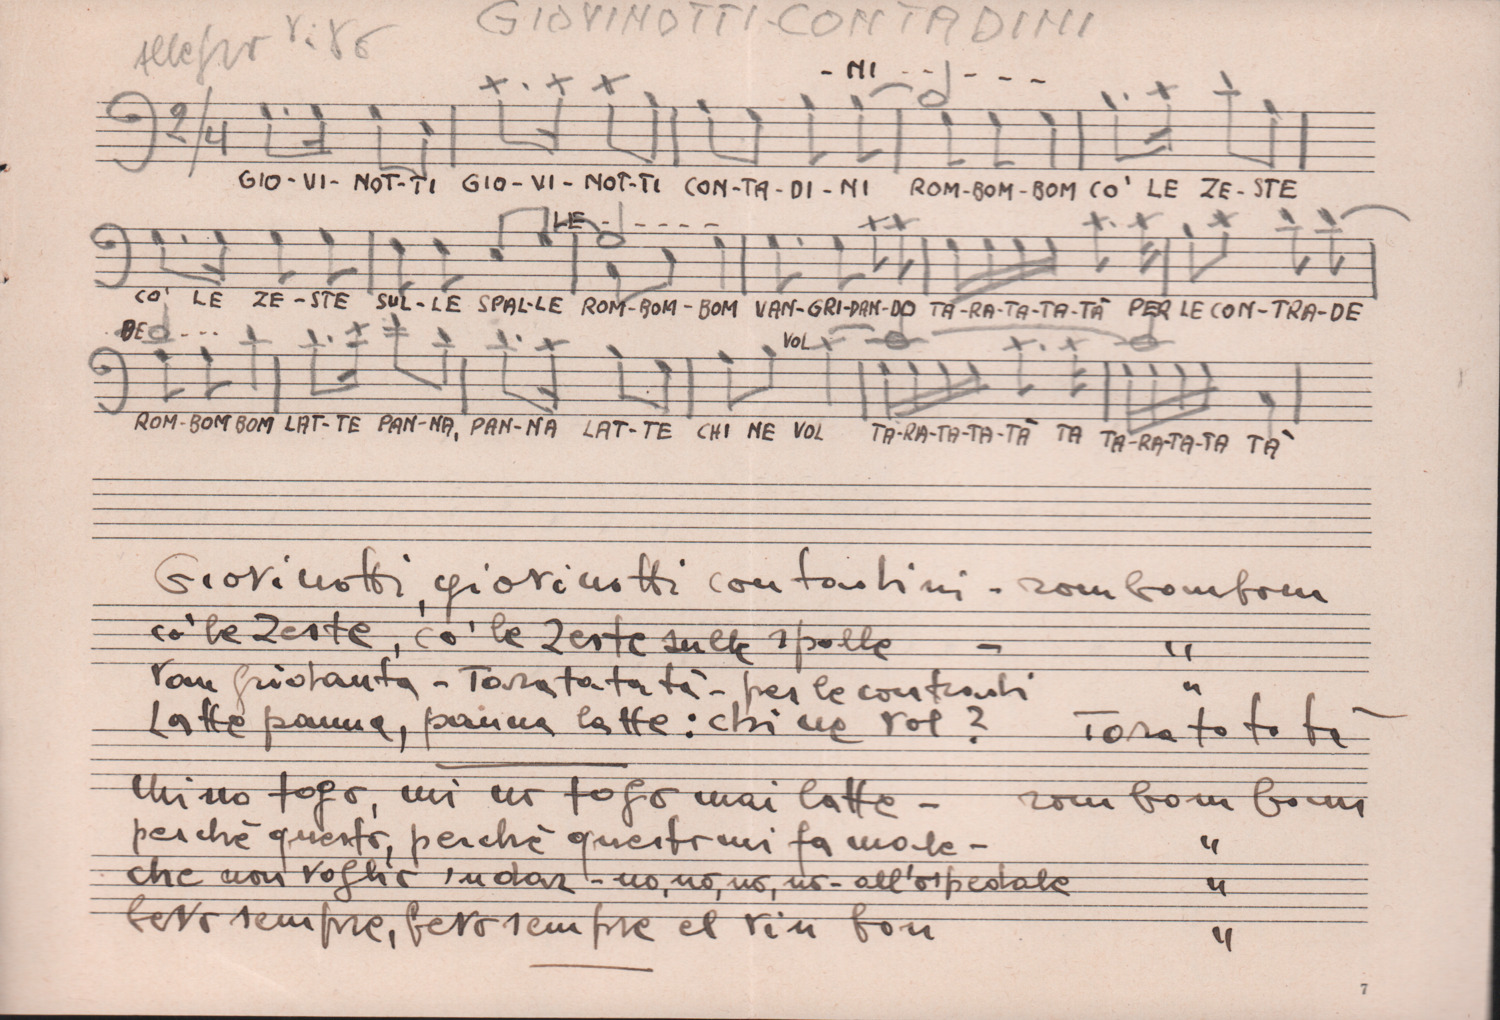 GIOVINOTTI-CONTADINI
Allegro vivo
- NI - - - - - -
2/4
GIO-VI- NOT-TI GIO-VI- NOT-TI CON-TA-DI-NI ROM-BOM-BOM CO' LE ZE-STE
LE - - - - -
CO' LE ZE-STE SUL-LE SPAL-LE ROM-BOM-BOM VAN-GRI-DAN-DO TA-RA-TA-TA-TÀ PER LE CON-TRA-DE
DE - - -
VOL
ROM-BOM BOM LAT-TE PAN-NA, PAN-NA LAT-TE CHI NE VOL TA-RA-TA-TA-TÀ TA TA-RA-TA-TA TÀ
Giovinotti, giovinotti contadini - rombombom
co' le zeste, co' le zeste sulle spalle - "
van - Taratatatà - per le "
Latte panna, panna latte: chi ne vol? Taratatatà
Mi no togo, mi no togo mai latte - rom bom bom
perché questo, perché questo mi fa male - "
che non voglio - no, no, no, no - all'ospedale "
bevo sempre, bevo sempre el vin bon "
7